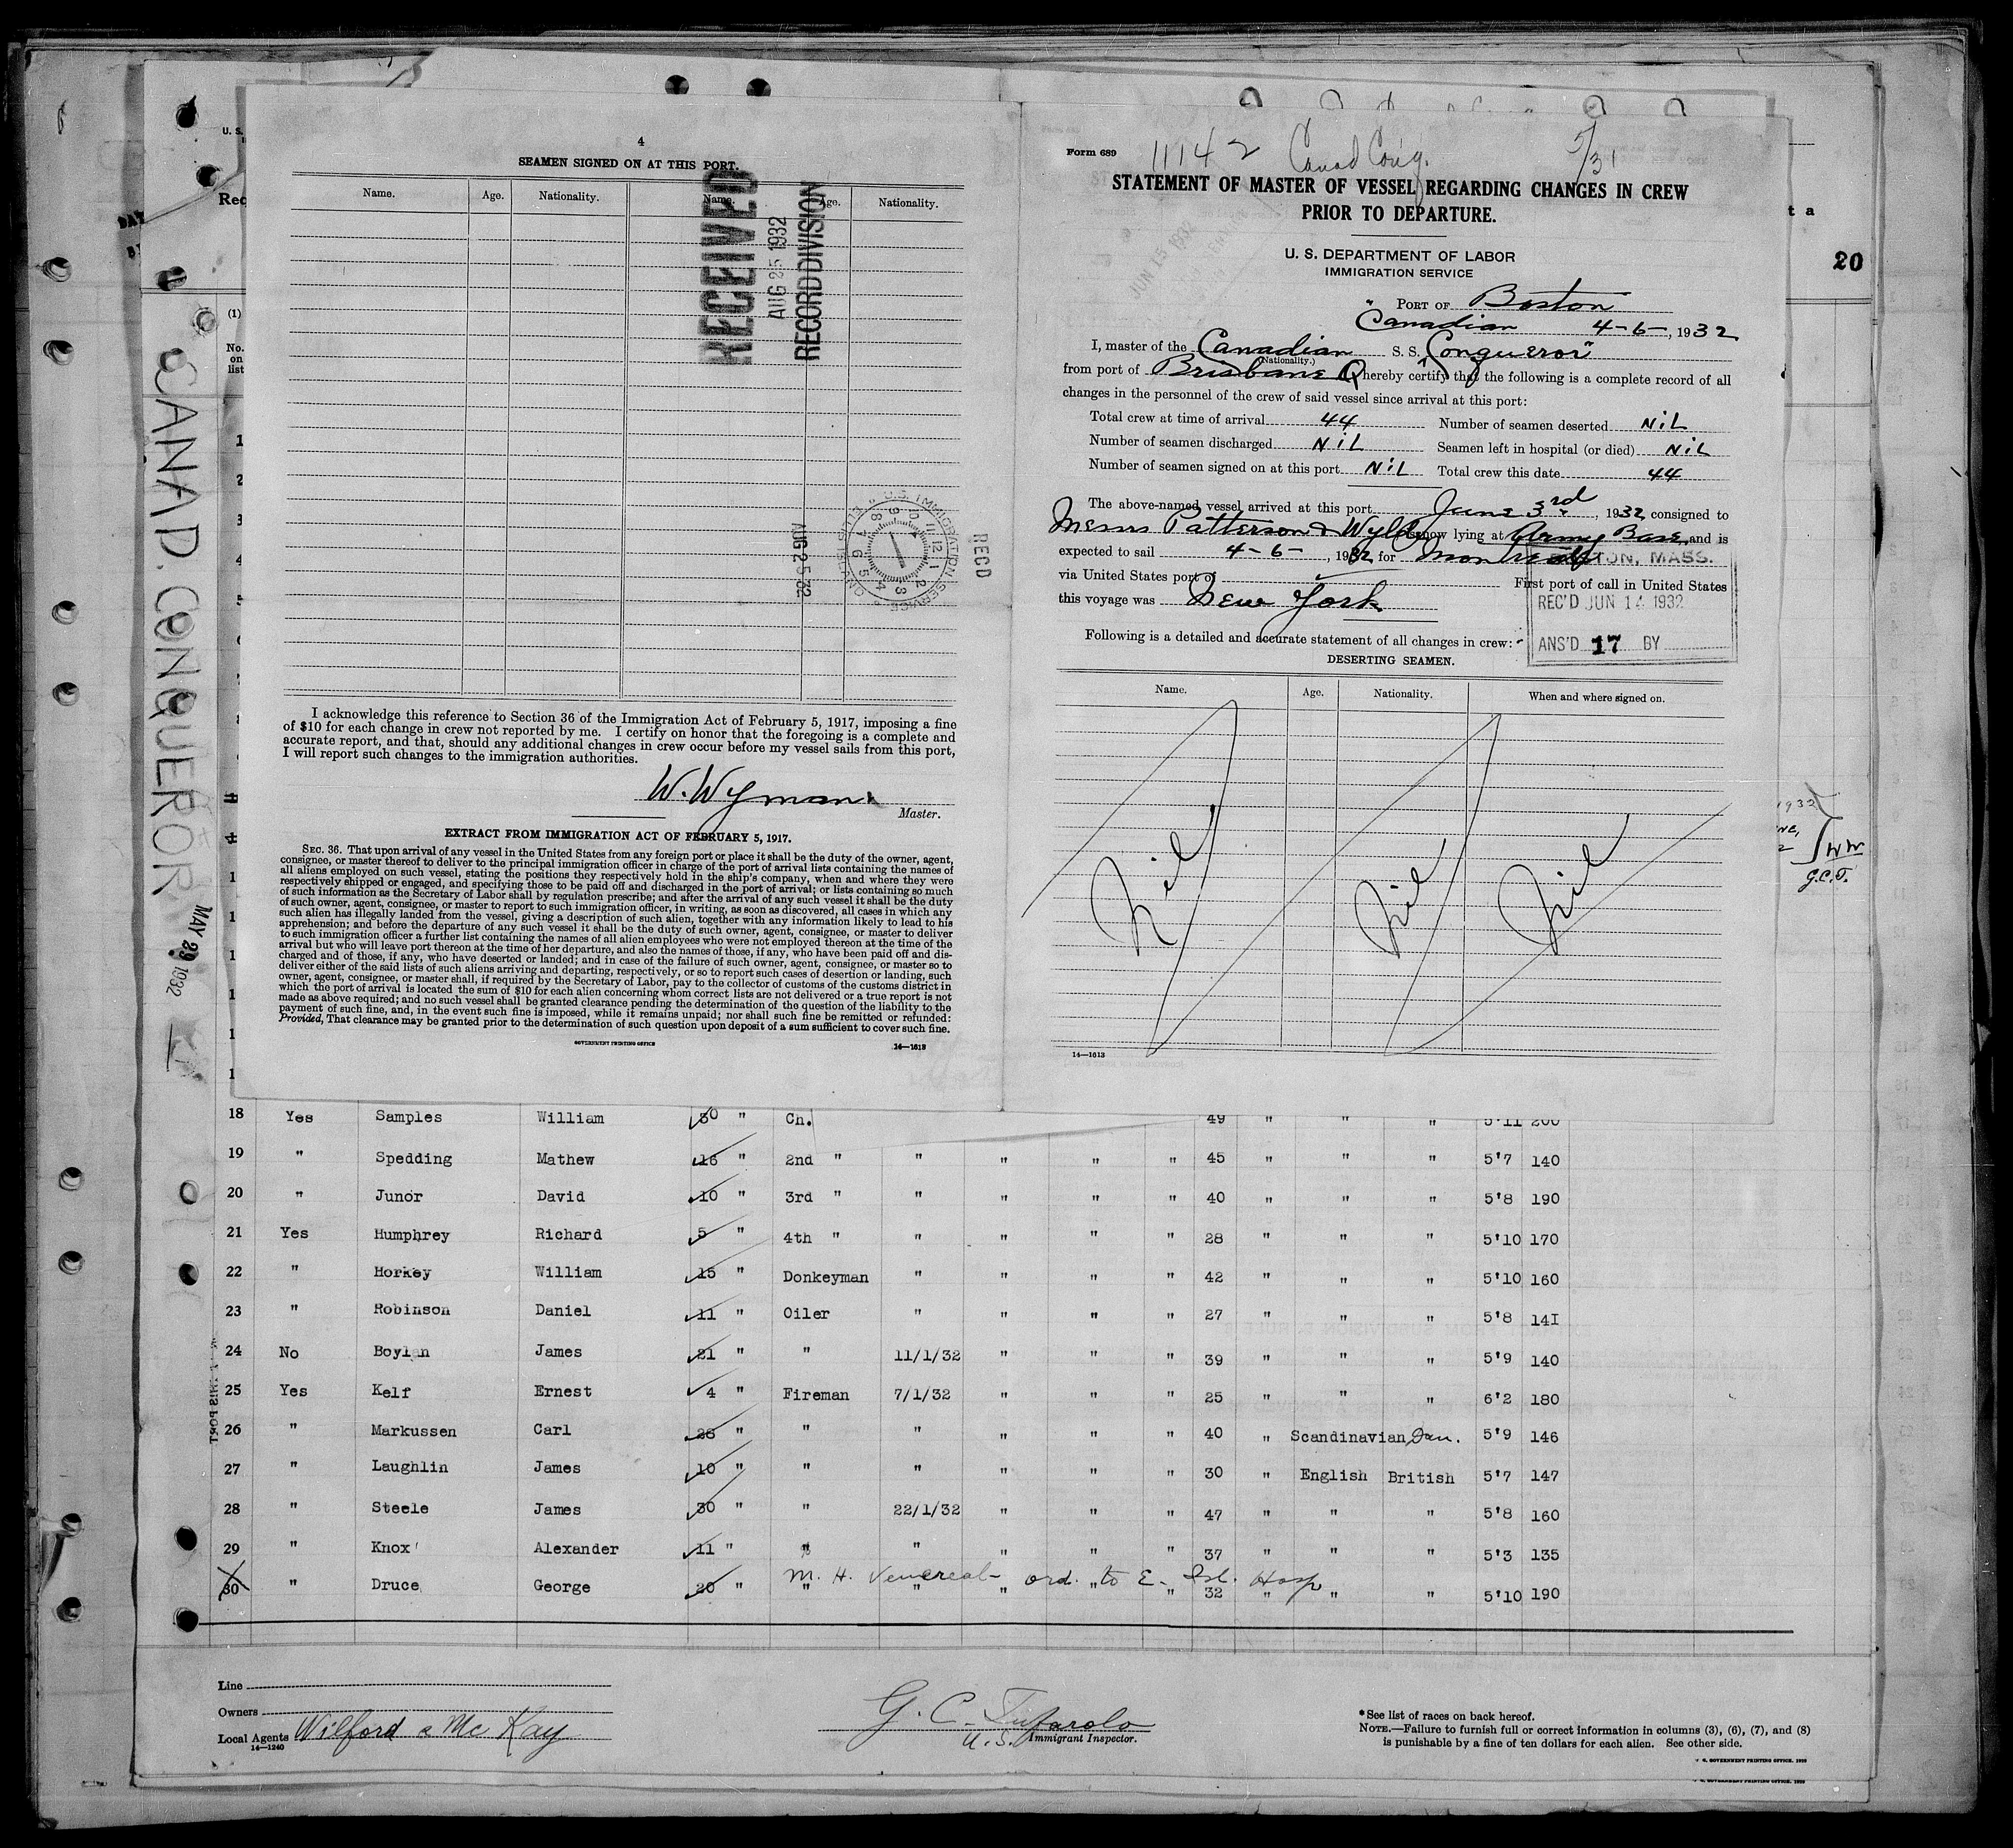 4
SEAMEN SIGNED ON AT THIS PORT.
Name. Age. Nationality. Name. Age. Nationality.
RECEIVED
AUG 25 1932
RECORD DIVISION
U. S. IMMIGRATION SERVICE
ELLIS ISLAND
AUG 25 32
RECD
I acknowledge this reference to Section 36 of the Immigration Act of February 5, 1917, imposing a fine
of $10 for each change in crew not reported by me. I certify on honor that the foregoing is a complete and
accurate report, and that, should any additional changes in crew occur before my vessel sails from this port,
I will report such changes to the immigration authorities.
W. Wyman
Master.
EXTRACT FROM IMMIGRATION ACT OF FEBRUARY 5, 1917.
SEC. 36. That upon arrival of any vessel in the United States from any foreign port or place it shall be the duty of the owner, agent,
consignee, or master thereof to deliver to the principal immigration officer in charge of the port of arrival lists containing the names of
all aliens employed on such vessel, stating the positions they respectively hold in the ship's company, when and where they were
respectively shipped or engaged, and specifying those to be paid off and discharged in the port of arrival; or lists containing so much
of such information as the Secretary of Labor shall by regulation prescribe; and after the arrival of any such vessel it shall be the duty
of such owner, agent, consignee, or master to report to such immigration officer, in writing, as soon as discovered, all cases in which any
such alien has illegally landed from the vessel, giving a description of such alien, together with any information likely to lead to his
apprehension; and before the departure of any such vessel it shall be the duty of such owner, agent, consignee, or master to deliver
to such immigration officer a further list containing the names of all alien employees who were not employed thereon at the time of the
arrival but who will leave port thereon at the time of her departure, and also the names of those, if any, who have been paid off and dis-
charged and of those, if any, who have deserted or landed; and in case of the failure of such owner, agent, consignee, or master so to
deliver either of the said lists of such aliens arriving and departing, respectively, or so to report such cases of desertion or landing, such
owner, agent, consignee, or master shall, if required by the Secretary of Labor, pay to the collector of customs of the customs district in
which the port of arrival is located the sum of $10 for each alien concerning whom correct lists are not delivered or a true report is not
made as above required; and no such vessel shall be granted clearance pending the determination of the question of the liability to the
payment of such fine, and, in the event such fine is imposed, while it remains unpaid; nor shall such fine be remitted or refunded:
Provided, That clearance may be granted prior to the determination of such question upon deposit of a sum sufficient to cover such fine.
GOVERNMENT PRINTING OFFICE 14—1613
Form 689 11142 Canad Conq. 5/31
STATEMENT OF MASTER OF VESSEL REGARDING CHANGES IN CREW
PRIOR TO DEPARTURE.
JUN 15 1932
U. S. DEPARTMENT OF LABOR
IMMIGRATION SERVICE
PORT OF Boston
"Canadian 4-6-, 1932
I, master of the Canadian S. S. Conqueror"
(Nationality.)
from port of Brisbane Q hereby certify that the following is a complete record of all
changes in the personnel of the crew of said vessel since arrival at this port:
Total crew at time of arrival 44 Number of seamen deserted Nil
Number of seamen discharged Nil Seamen left in hospital (or died) Nil
Number of seamen signed on at this port Nil Total crew this date 44
The above-named vessel arrived at this port June 3rd, 1932, consigned to
Messrs Patterson & Wylde now lying at Army Base, and is
expected to sail 4-6-, 1932 for Montreal
via United States port of First port of call in United States
this voyage was New York
BOSTON, MASS.
REC'D JUN 14 1932
ANS'D 17 BY
Following is a detailed and accurate statement of all changes in crew:
DESERTING SEAMEN.
Name. Age. Nationality. When and where signed on.
Nil Nil Nil
14—1613
CANAD. CONQUEROR
MAY 29 1932
U. S.
Rec
20
(1)
No. on list
W W
G.C.T.
18 Yes Samples William 30 " Ch. 49 " " " 5'11 200
19 " Spedding Mathew 16 " 2nd " " " " " 45 " " " 5'7 140
20 " Junor David 10 " 3rd " " " " " 40 " " " 5'8 190
21 Yes Humphrey Richard 5 " 4th " " " " " 28 " " " 5'10 170
22 " Horkey William 15 " Donkeyman " " " " 42 " " " 5'10 160
23 " Robinson Daniel 11 " Oiler " " " " 27 " " " 5'8 141
24 No Boylan James 21 " " 11/1/32 " " " 39 " " " 5'9 140
25 Yes Kelf Ernest 4 " Fireman 7/1/32 " " " 25 " " " 6'2 180
26 " Markussen Carl 28 " " " " " " 40 " Scandinavian Dan. 5'9 146
27 " Laughlin James 10 " " " " " " 30 " English British 5'7 147
28 " Steele James 30 " " 22/1/32 " " " 47 " " " 5'8 160
29 " Knox Alexander 11 " " " " " " 37 " " " 5'3 135
M. H. Venereal - ord. to E. Isl. Hosp
30 " Druce George 20 " " " " " " 32 " " " 5'10 190
Line
Owners
Local Agents Wilford & McKay
14—1240
G. C. Tufarolo
U. S. Immigrant Inspector.
*See list of races on back hereof.
NOTE.—Failure to furnish full or correct information in columns (3), (6), (7), and (8)
is punishable by a fine of ten dollars for each alien. See other side.